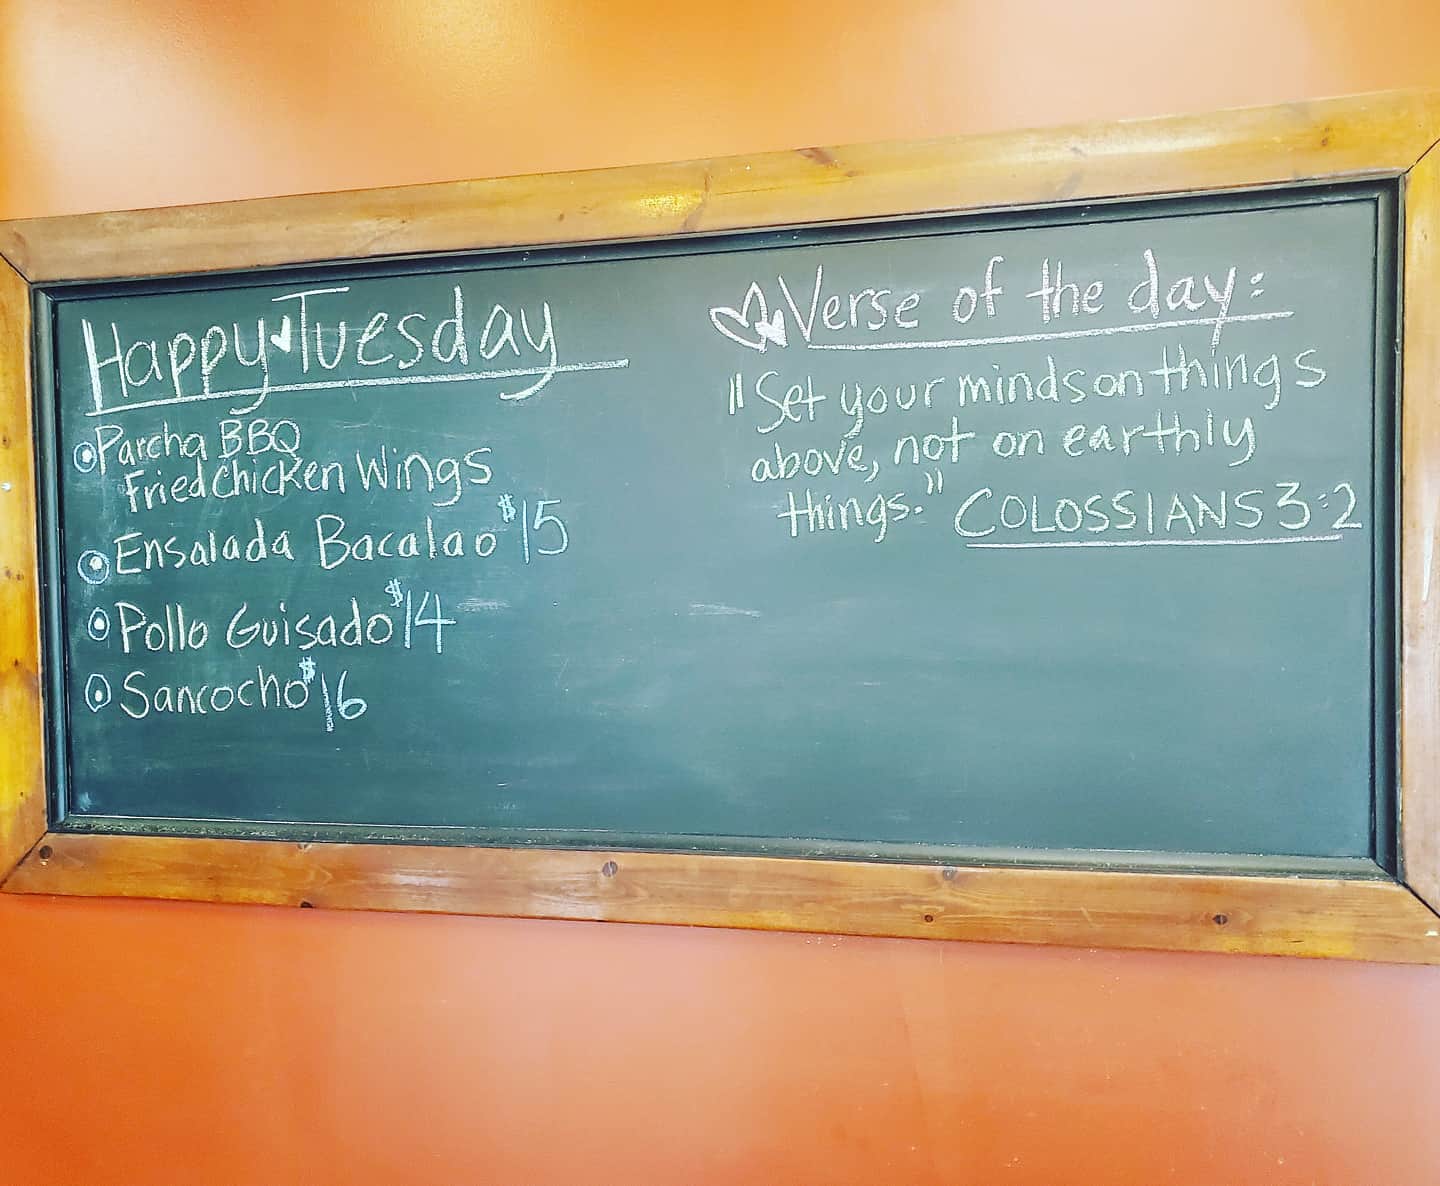 Happy Tuesday
Parcha BBQ
Fried Chicken Wings
Ensalada Bacalao $15
Pollo Guisado $14
Sancocho $16
Verse of the day:
"Set your minds on things
above, not on earthly
things." COLOSSIANS 3:2